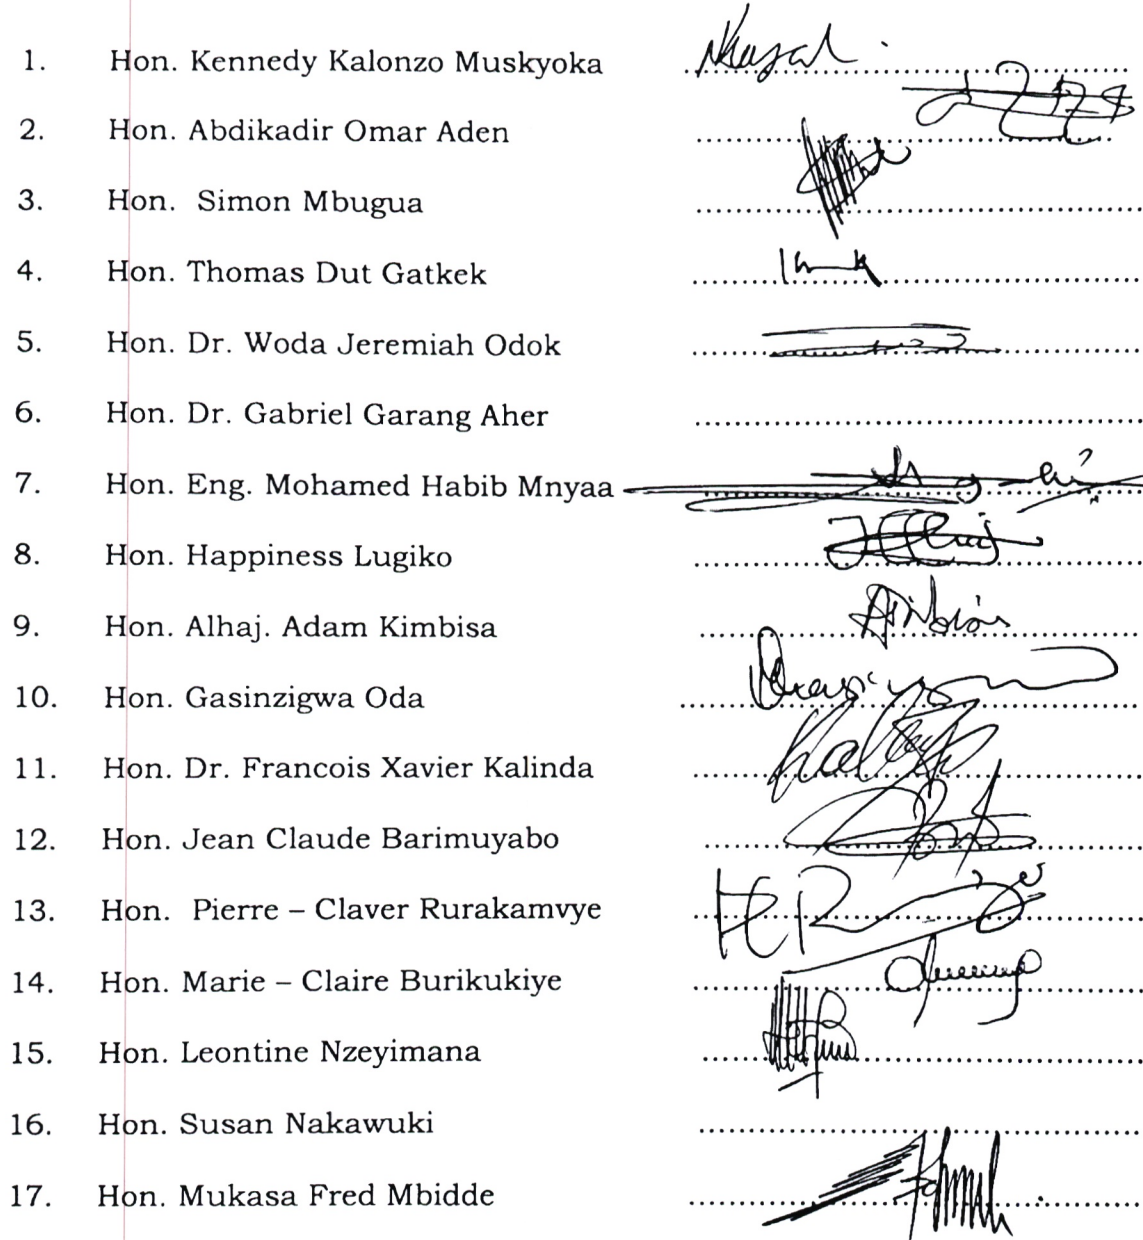 1. Hon. Kennedy Kalonzo Muskyoka
2. Hon. Abdikadir Omar Aden
3. Hon. Simon Mbugua
4. Hon. Thomas Dut Gatkek
5. Hon. Dr. Woda Jeremiah Odok
6. Hon. Dr. Gabriel Garang Aher
7. Hon. Eng. Mohamed Habib Mnyaa
8. Hon. Happiness Lugiko
9. Hon. Alhaj. Adam Kimbisa
10. Hon. Gasinzigwa Oda
11. Hon. Dr. Francois Xavier Kalinda
12. Hon. Jean Claude Barimuyabo
13. Hon. Pierre – Claver Rurakamvye
14. Hon. Marie – Claire Burikukiye
15. Hon. Leontine Nzeyimana
16. Hon. Susan Nakawuki
17. Hon. Mukasa Fred Mbidde